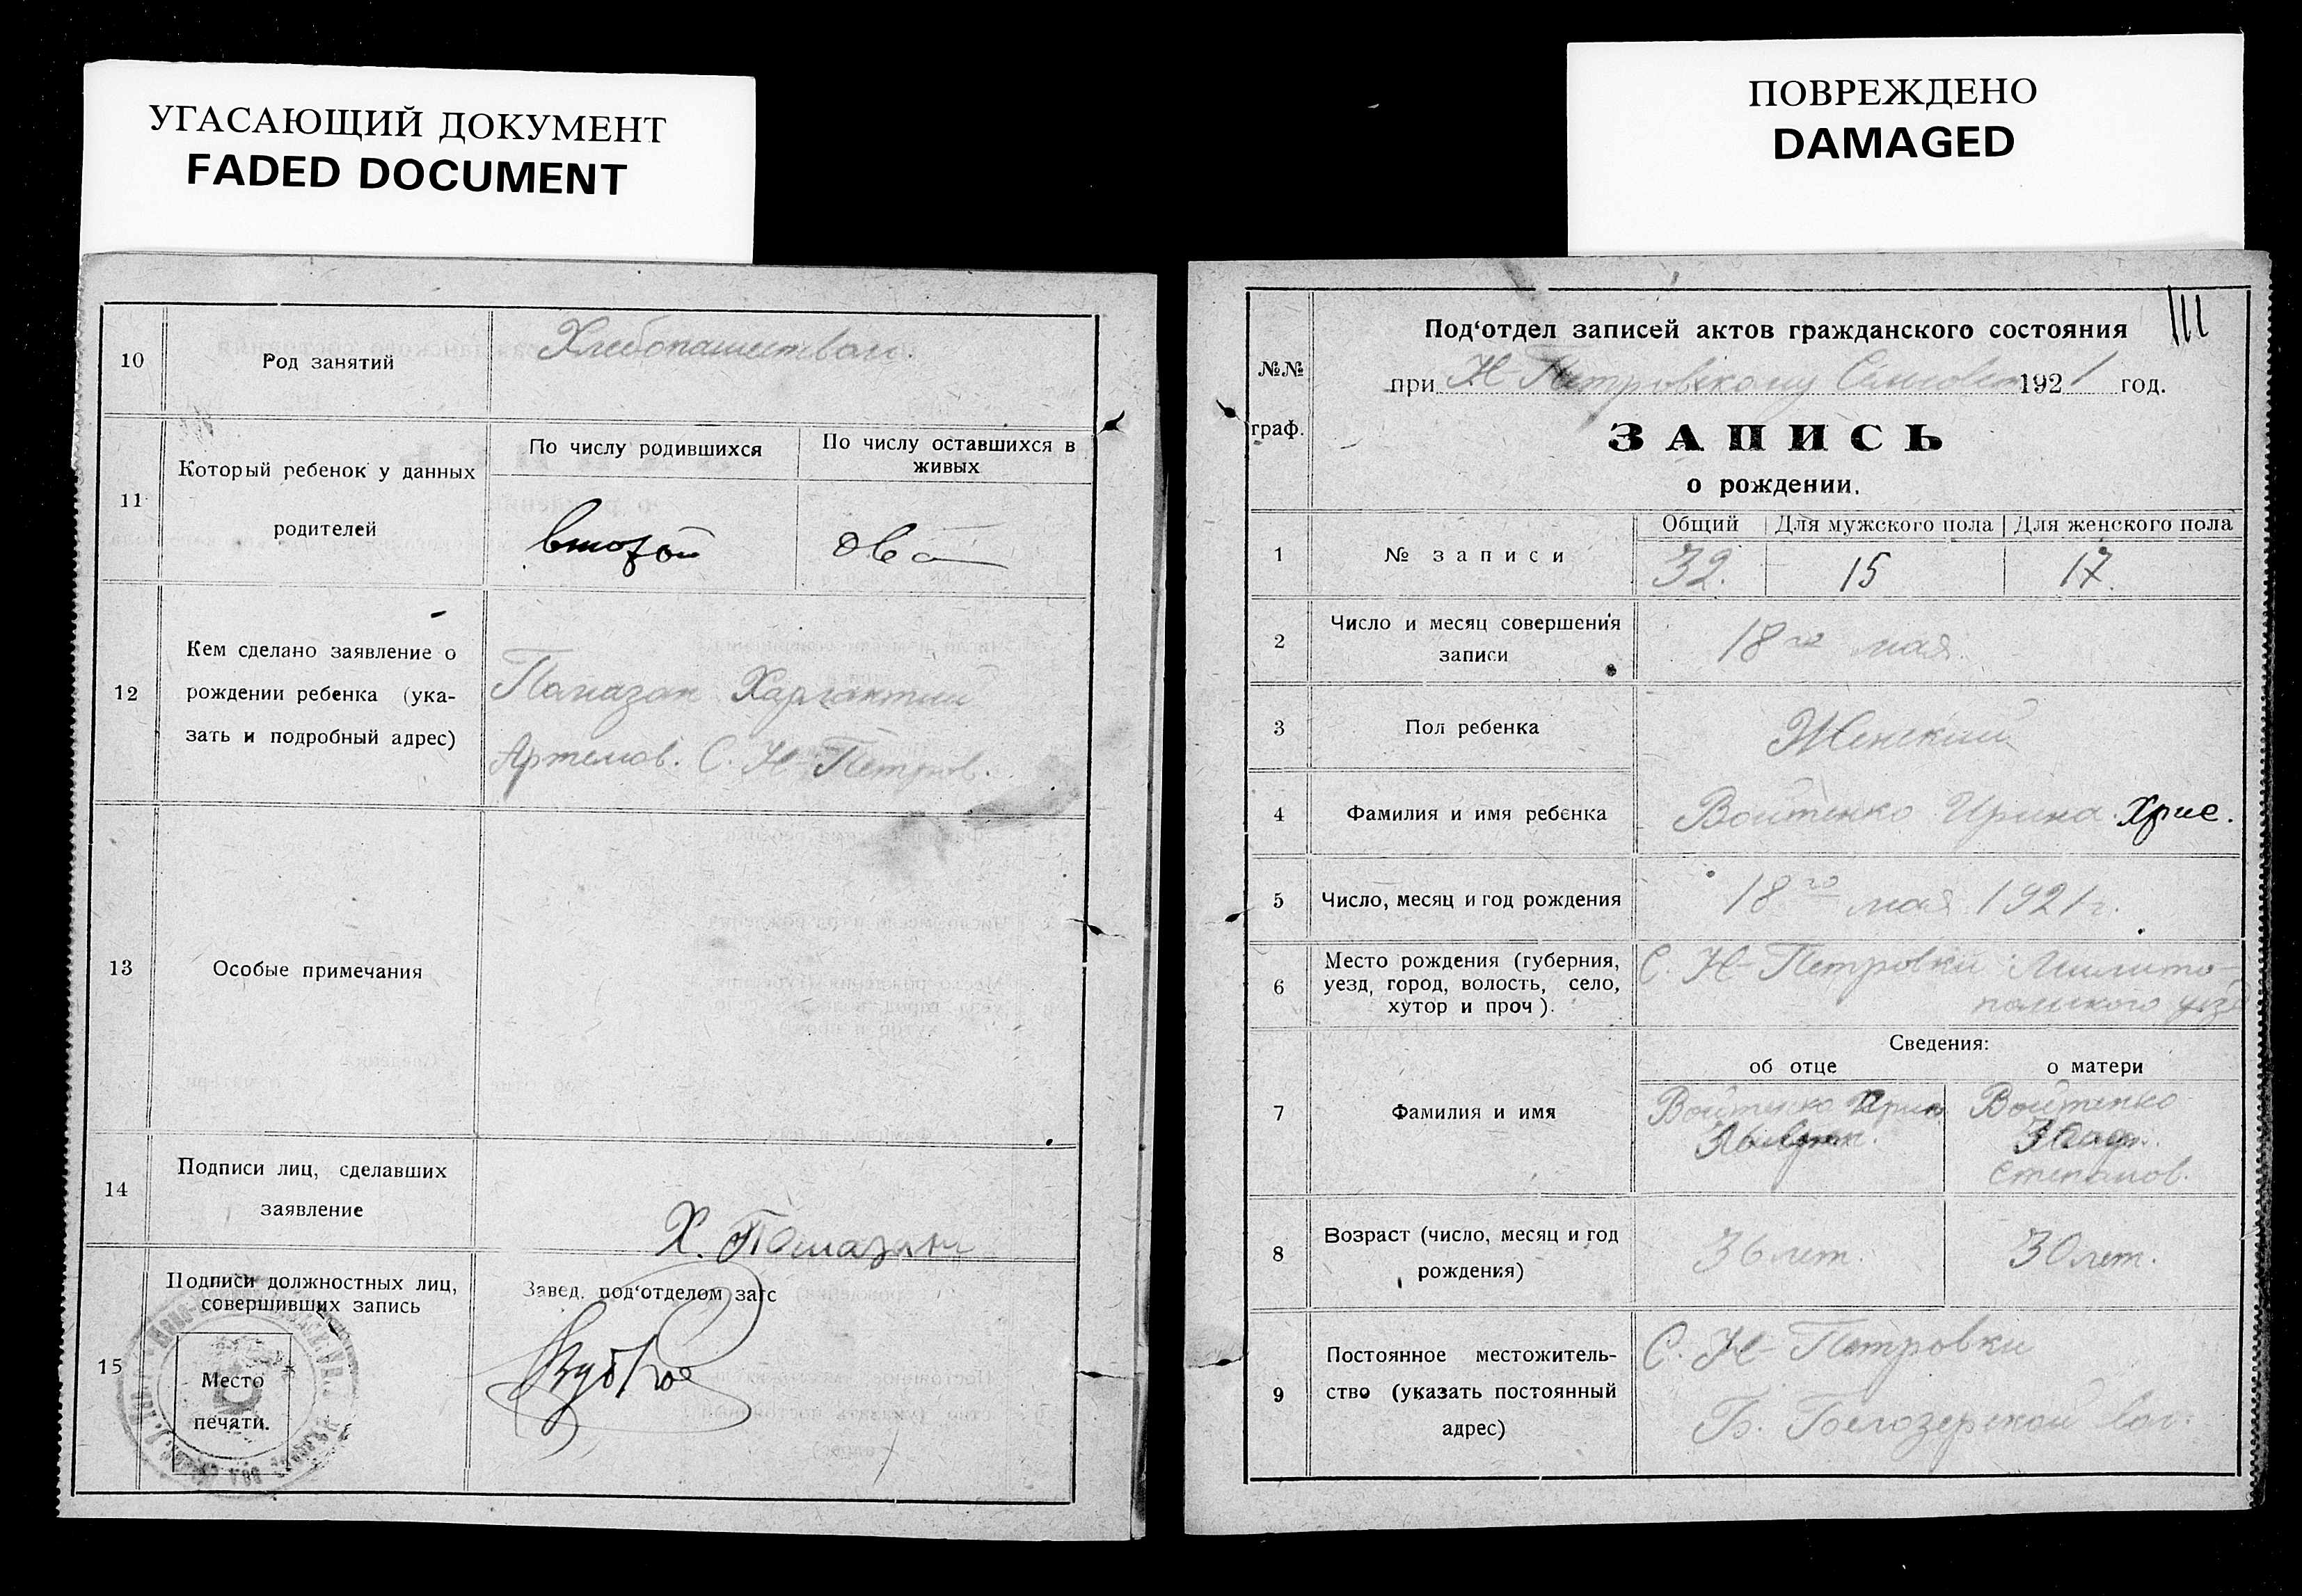 УГАСАЮЩИЙ ДОКУМЕНТ
FADED DOCUMENT
10
Род занятий
Хлебопашеством.
11
Который ребенок у данных
родителей
По числу родившихся
По числу оставшихся в
живых
второй
два
12
Кем сделано заявление о
рождении ребенка (ука-
зать и подробный адрес)
Артемов. С. Н-Петров.
13
Особые примечания
14
Подписи лиц, сделавших
заявление
Х.
15
Подписи должностных лиц,
совершивших запись
Место
печати.
Завед. под‘отделом загс
ПОВРЕЖДЕНО
DAMAGED
№№
граф.
Под‘отдел записей актов гражданского состояния
при Н-Петровскому 1921 год.
ЗАПИСЬ
о рождении.
1
№ записи
Общий
Для мужского пола
Для женского пола
32.
15
17.
2
Число и месяц совершения
записи
18го мая.
3
Пол ребенка
Женский
4
Фамилия и имя ребенка
Войтенко Ирина Хрис.
5
Число, месяц и год рождения
18го мая 1921 г.
6
Место рождения (губерния,
уезд, город, волость, село,
хутор и проч).
С. Н-Петровки Милито-
польского уез
Сведения:
об отце
о матери
7
Фамилия и имя
Войтенко
Войтенко
Степанов.
8
Возраст (число, месяц и год
рождения)
36 лет.
30 лет.
9
Постоянное местожитель-
ство (указать постоянный
адрес)
С. Н-Петровки
Б. Белозерской вол.